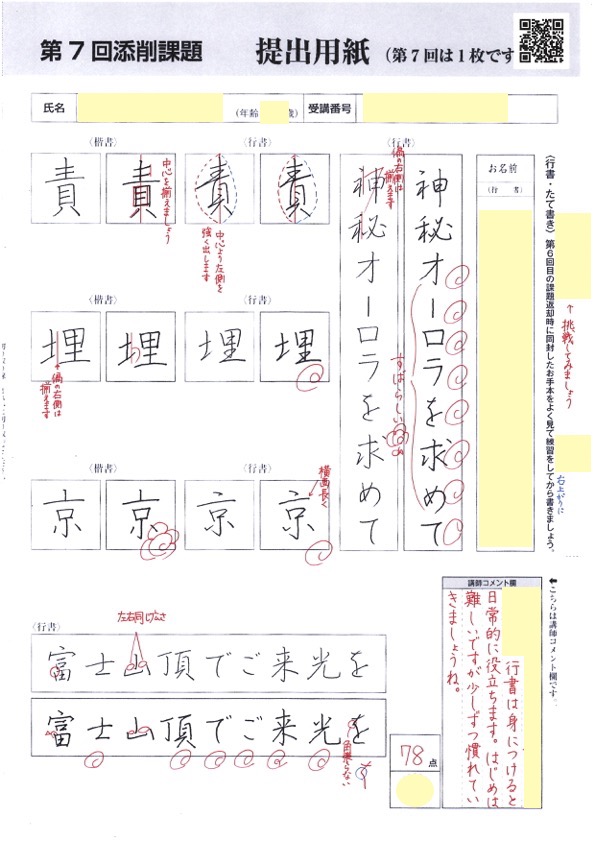 第7回添削課題
提出用紙(第7回は1枚です
氏名
(年齢 歳)
受講番号
〈楷書〉
〈行書〉
責
責
責
責
中心を揃えましょう
中心より左側を
強く出します
〈楷書〉
〈行書〉
埋
埋
埋
埋
偏の右側は
揃えます
〈楷書〉
〈行書〉
京
京
京
京
横画長く
〈行書〉
神秘オーロラを求めて
神秘オーロラを求めて
偏の右側は
揃えます
すばらしい
お名前
(行 書)
(行書・たて書き)第6回目の課題返却時に同封したお手本をよく見て練習をしてから書きましょう。
↑挑戦してみましょう
右上がりに
〈行書〉
富士山頂でご来光を
富士山頂でご来光を
左右同じ高さ
78点
講師コメント欄
行書は身につけると
日常的に役立ちます。はじめは
難しいですが少しずつ慣れてい
きましょうね。
←こちらは講師コメント欄です